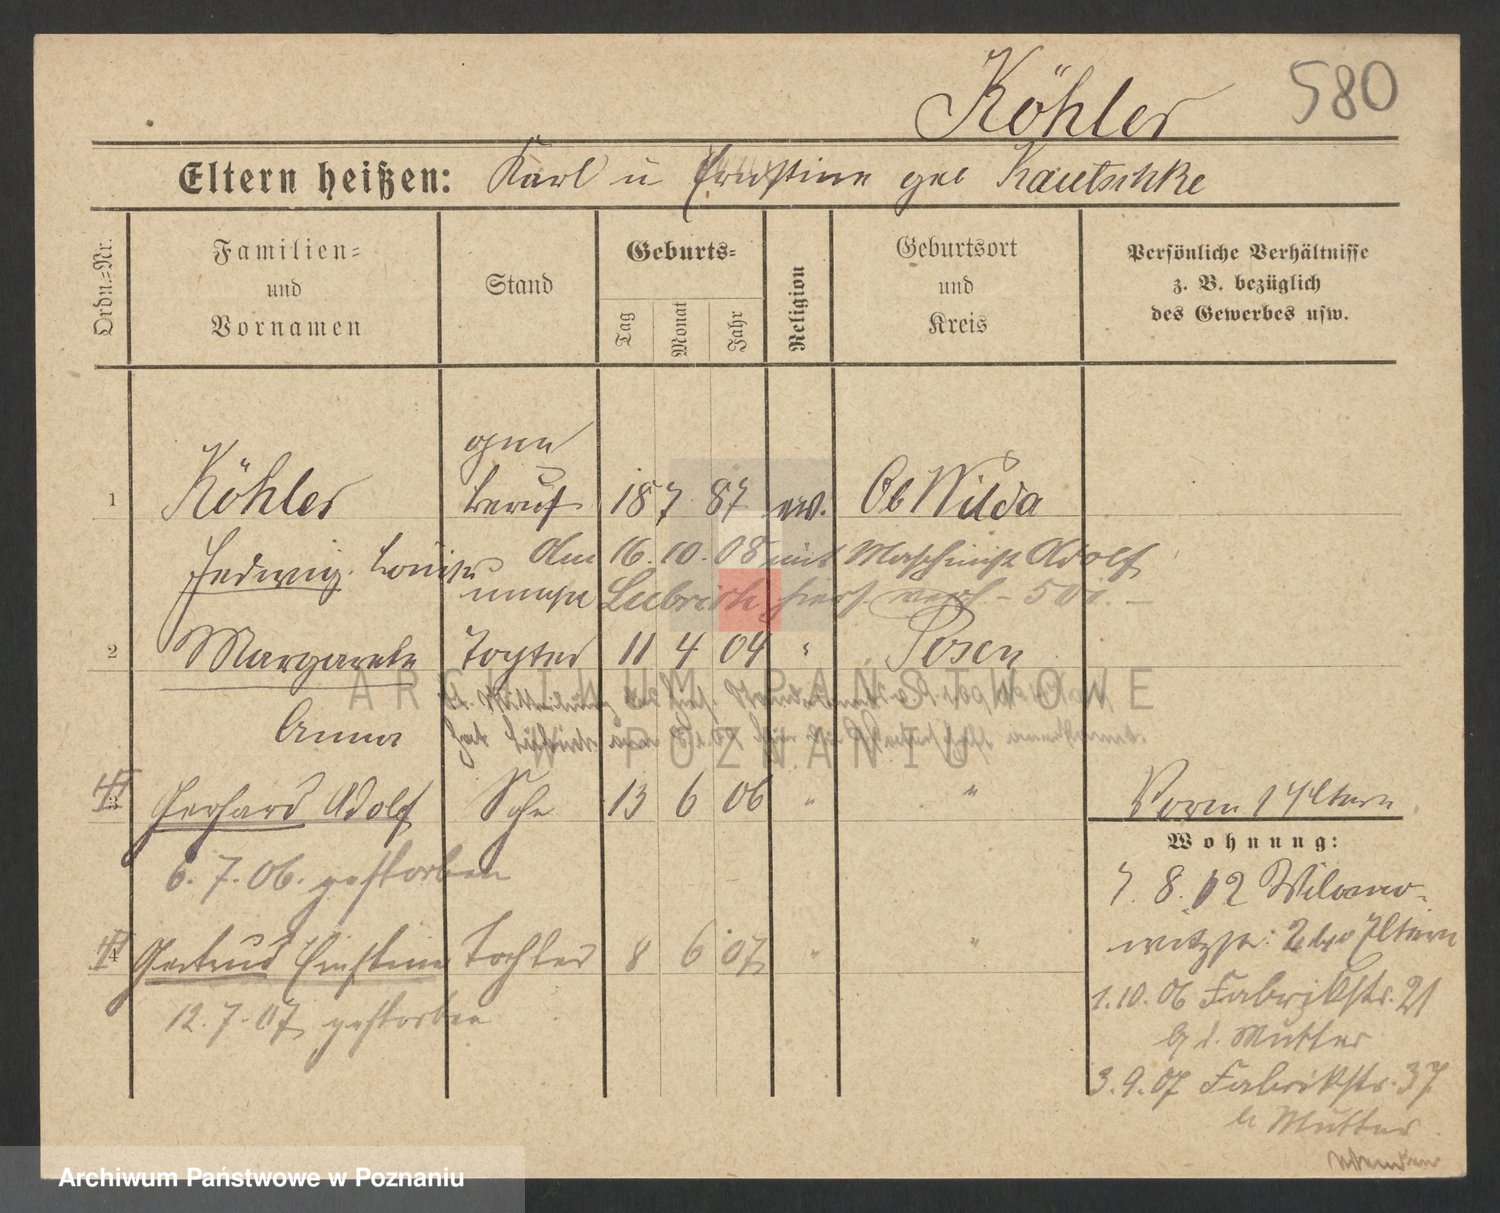 Köhler 580
Eltern heißen: Karl u Ernstine geb Kautschke
Ordn.=Nr.
Familien=
und
Vornamen
Stand
Geburts=
Tag
Monat
Jahr
Religion
Geburtsort
und
Kreis
Persönliche Verhältnisse
z. B. bezüglich
des Gewerbes usw.
ohne
1 Köhler Beruf 18 7 87 ev. Ob Wilda
Hedwig Louise Am 16.10.08 mit Maschinist Adolf
hier verh
2 Margarete Tochter 11 4 04 " Posen
Anna
3 Gerhard Adolf Sohn 13 6 06 " "
6.7.06. gestorben
4 Gertrud Ernstine Tochter 8 6 07 " "
12.7.07 gestorben
Wohnung:
1.10.06 Fabrikstr. 21
b d. Mutter
3.9.07 Fabrikstr. 37
b Mutter
wenden
ARCHIWUM PAŃSTWOWE
W POZNANIU
Archiwum Państwowe w Poznaniu